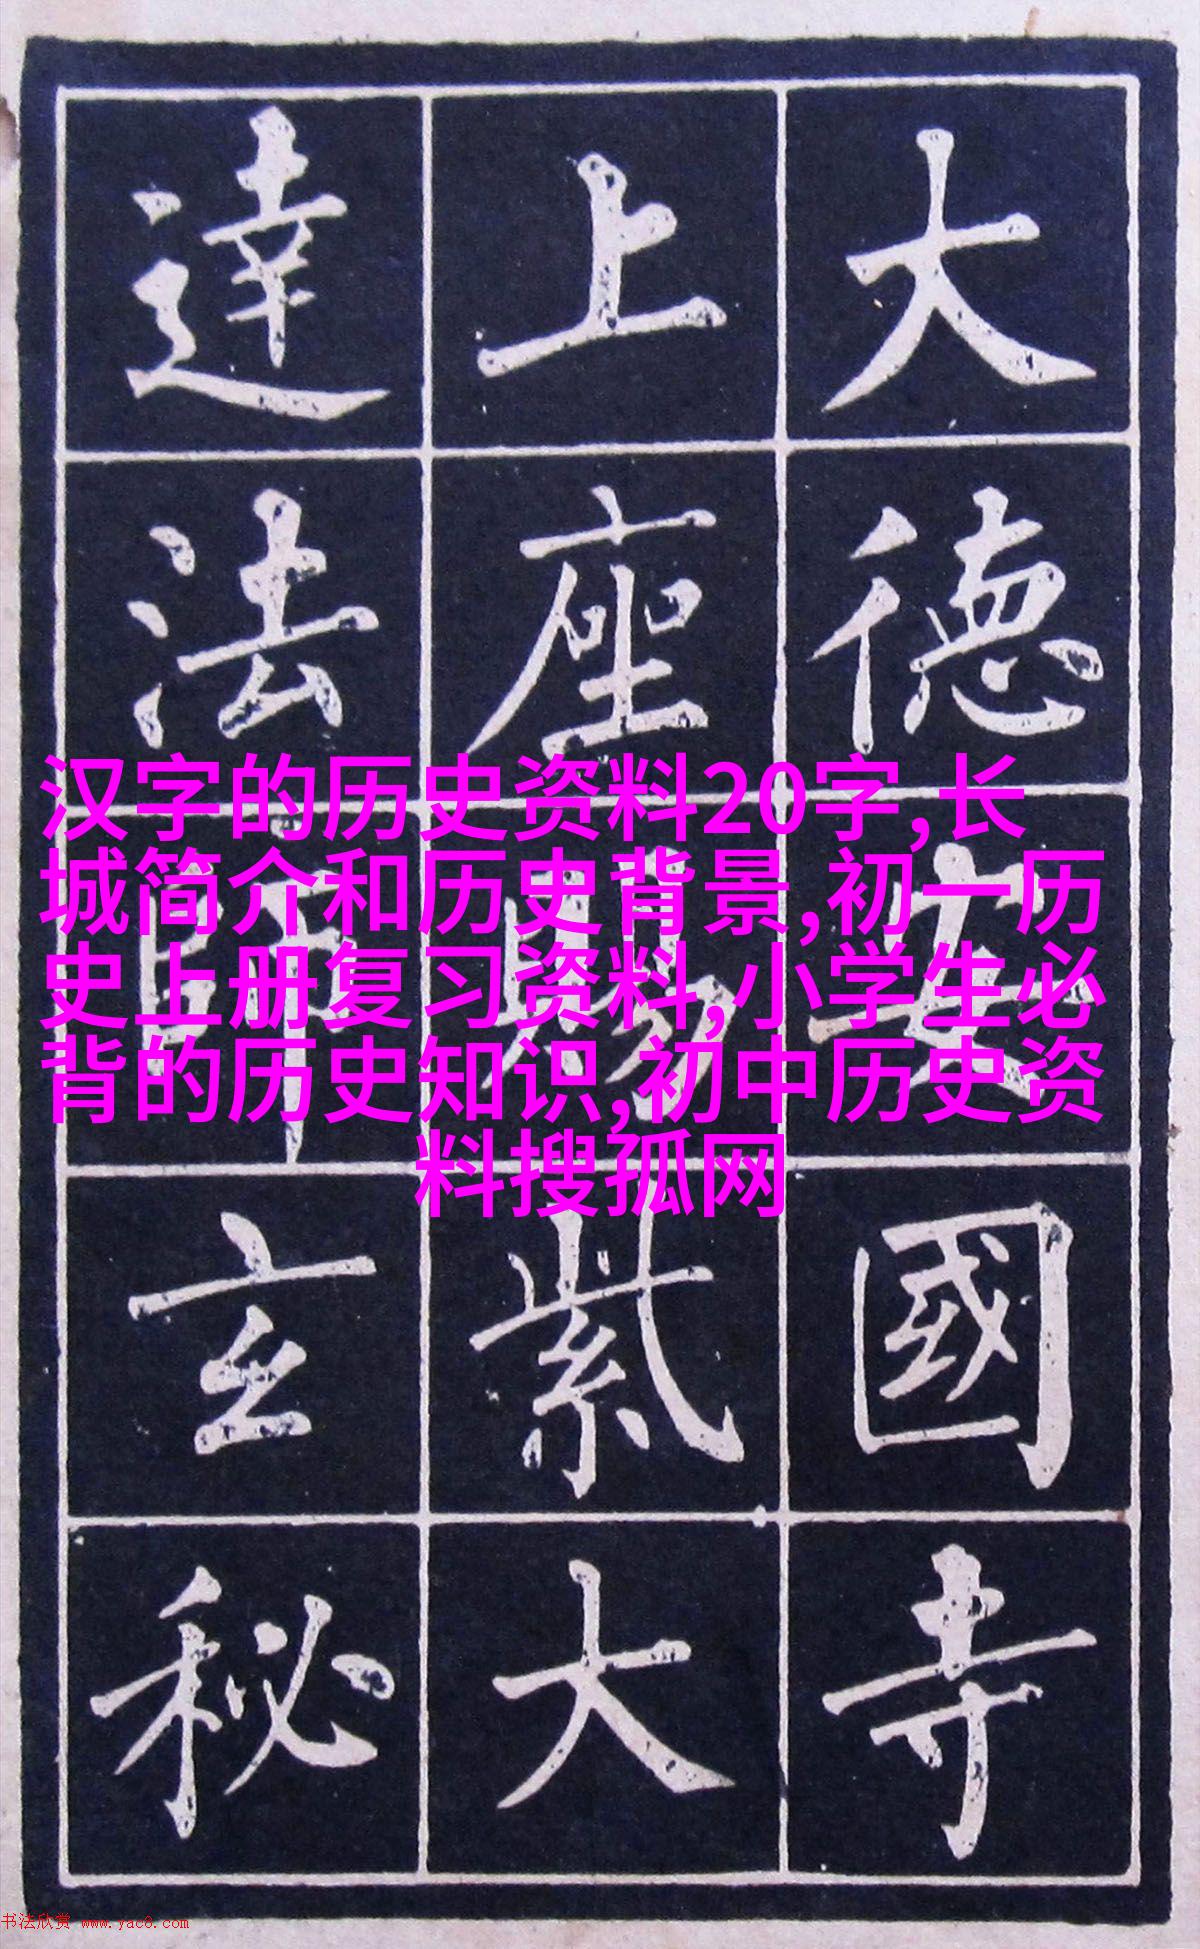 大德安國寺
上座賜紫大
達法師玄秘
汉字的历史资料20字,长
城简介和历史背景,初一历
史上册复习资料,小学生必
背的历史知识,初中历史资
料搜孤网
书法欣赏 www.yac8.com